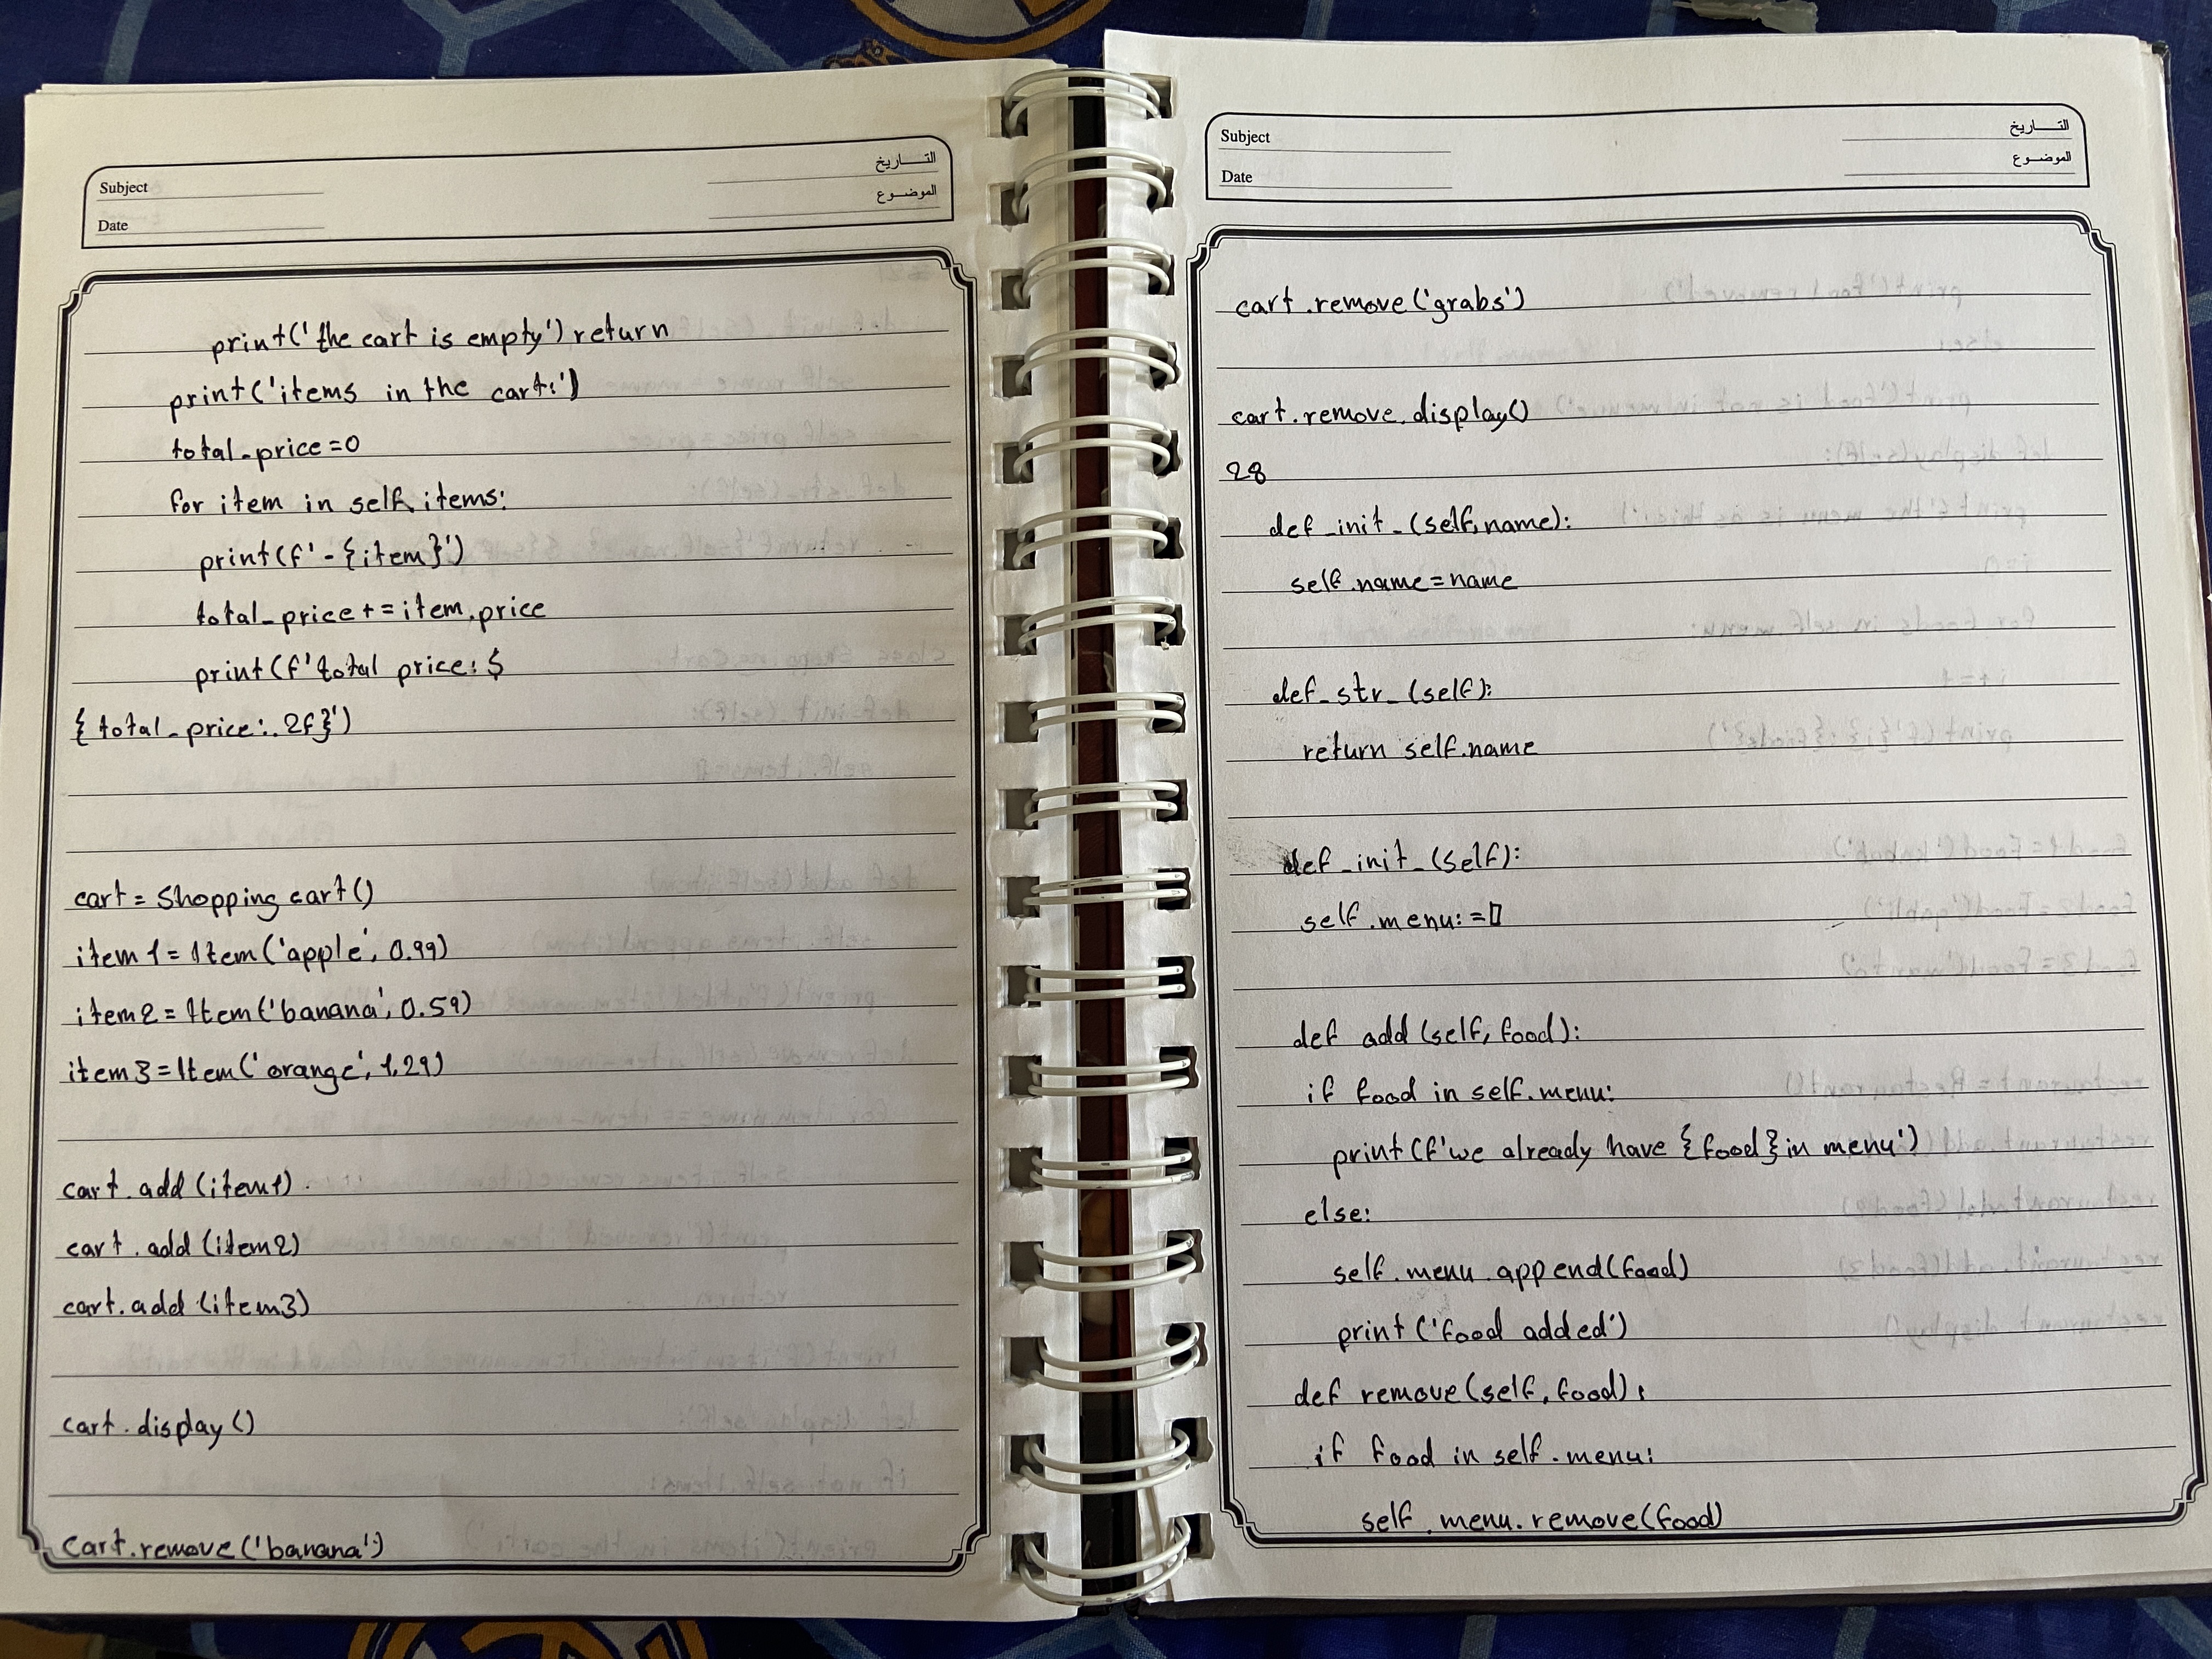 Subject
Date
التــاريخ
الموضـوع
print('the cart is empty') return
print('items in the cart:')
total_price=0
for item in self.items:
print(f'-{item}')
total_price+=item.price
print(f'total price:$
{total_price:.2f}')
cart=shopping cart()
item1=Item('apple',0.99)
item2=Item('banana',0.59)
item3=Item('orange',1.29)
cart.add(item1)
cart.add(item2)
cart.add(item3)
cart.display()
cart.remove('banana')
Subject
Date
التــاريخ
الموضـوع
cart.remove('grabs')
cart.remove.display()
28
def_init_(self,name):
self.name=name
def_str_(self):
return self.name
def_init_(self):
self.menu:=[]
def add(self,food):
if food in self.menu:
print(f'we already have {food}in menu')
else:
self.menu.append(food)
print('food added')
def remove(self,food):
if food in self.menu:
self.menu.remove(food)